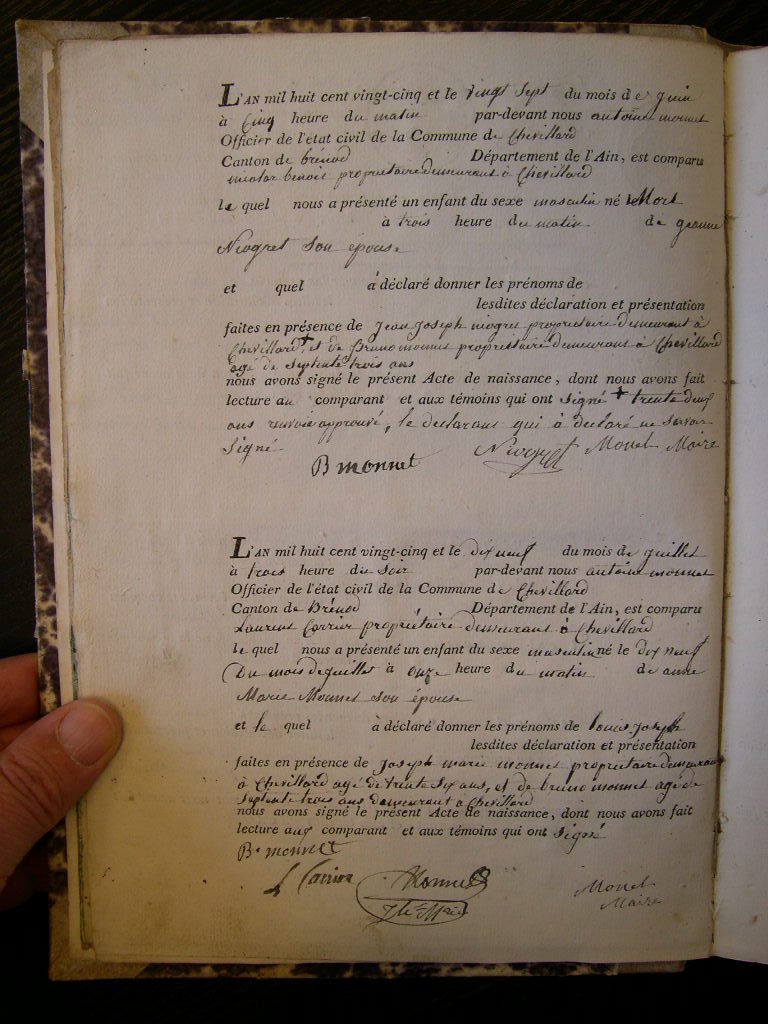 L'AN mil huit cent vingt-cinq et le vingt sept du mois de juin
à Cinq heure du matin par-devant nous antoine monnet
Officier de l'état civil de la Commune de Chevillard
Canton de brénod Département de l'Ain, est comparu
nicolas benoit proprietaire demeurant à Chevillard
le quel nous a présenté un enfant du sexe masculin né Mort
à trois heure du matin de jeanne
Niogret son épouse
et quel à déclaré donner les prénoms de
lesdites déclaration et présentation
faites en présence de Jean Joseph niogret proprietaire demeurant à
Chevillard + et de Bruno monnet proprietaire demeurant à Chevillard
agé de septente trois ans
nous avons signé le présent Acte de naissance, dont nous avons fait
lecture au comparant et aux témoins qui ont signé + trente deux
ans renvoie approuvé, le declarant qui à déclaré ne savoir
signé
B monnet Niogret Monet Maire
L'AN mil huit cent vingt-cinq et le dix neuf du mois de juillet
à trois heure du soir par-devant nous antoine monnet
Officier de l'état civil de la Commune de Chevillard
Canton de Brénod Département de l'Ain, est comparu
Laurent Carrier propriétaire demeurant à Chevillard
le quel nous a présenté un enfant du sexe masculin né le dix neuf
Du mois de juillet à onze heure du matin de anne
Marie Monnet son épouse
et le quel à déclaré donner les prénoms de louis joseph
lesdites déclaration et présentation
faites en présence de joseph marie monnet proprietaire demeurant
à Chevillard agé de trente six ans, et de bruno monnet agé de
septente trois ans demeurant à Chevillard
nous avons signé le présent Acte de naissance, dont nous avons fait
lecture aux comparant et aux témoins qui ont signé
B. monnet
L Carrier Monnet Monet
Maire